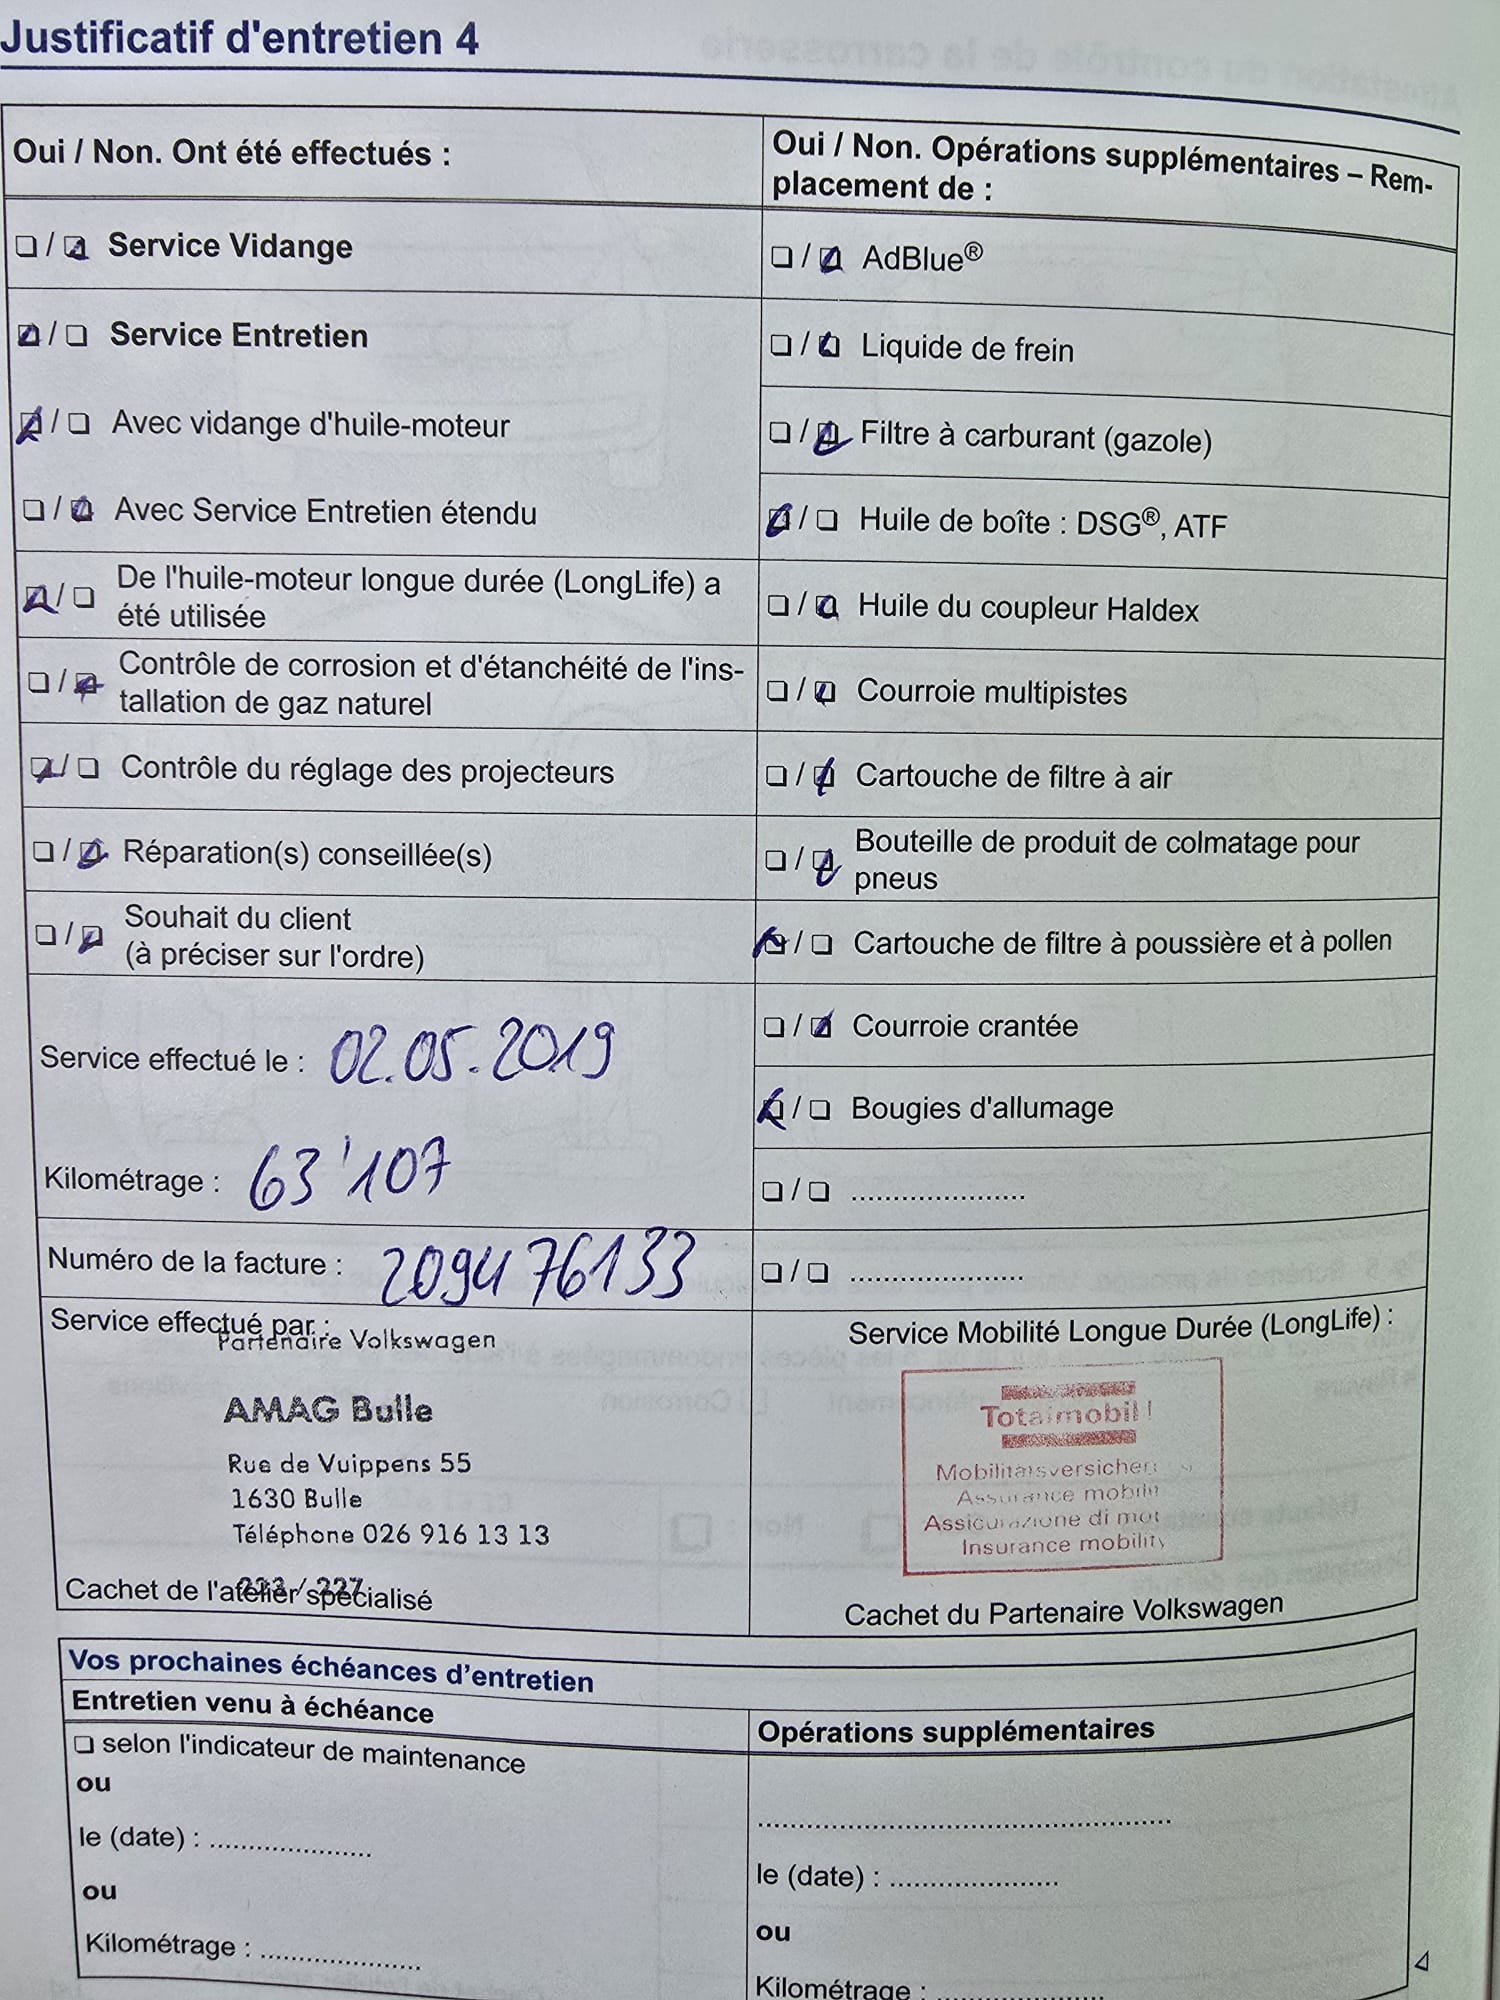 Justificatif d'entretien 4
Oui / Non. Ont été effectués :
☐ / ☑ Service Vidange
☑ / ☐ Service Entretien
☑ / ☐ Avec vidange d'huile-moteur
☐ / ☑ Avec Service Entretien étendu
☑ / ☐ De l'huile-moteur longue durée (LongLife) a
été utilisée
☐ / ☑ Contrôle de corrosion et d'étanchéité de l'ins-
tallation de gaz naturel
☑ / ☐ Contrôle du réglage des projecteurs
☐ / ☑ Réparation(s) conseillée(s)
☐ / ☑ Souhait du client
(à préciser sur l'ordre)
Service effectué le : 02.05.2019
Kilométrage : 63'107
Numéro de la facture : 209476133
Service effectué par :
Partenaire Volkswagen
AMAG Bulle
Rue de Vuippens 55
1630 Bulle
Téléphone 026 916 13 13
223 / 227
Cachet de l'atelier spécialisé
Oui / Non. Opérations supplémentaires – Rem-
placement de :
☐ / ☑ AdBlue®
☐ / ☑ Liquide de frein
☐ / ☑ Filtre à carburant (gazole)
☑ / ☐ Huile de boîte : DSG®, ATF
☐ / ☑ Huile du coupleur Haldex
☐ / ☑ Courroie multipistes
☐ / ☑ Cartouche de filtre à air
☐ / ☑ Bouteille de produit de colmatage pour
pneus
☑ / ☐ Cartouche de filtre à poussière et à pollen
☐ / ☑ Courroie crantée
☑ / ☐ Bougies d'allumage
☐ / ☐ .....................
☐ / ☐ .....................
Service Mobilité Longue Durée (LongLife) :
Totalmobil!
Assurance
Assicurazione di
Insurance mobility
Cachet du Partenaire Volkswagen
Vos prochaines échéances d'entretien
Entretien venu à échéance
☐ selon l'indicateur de maintenance
ou
le (date) : ....................
ou
Kilométrage : ....................
Opérations supplémentaires
..................................................
le (date) : ....................
ou
Kilométrage : ....................